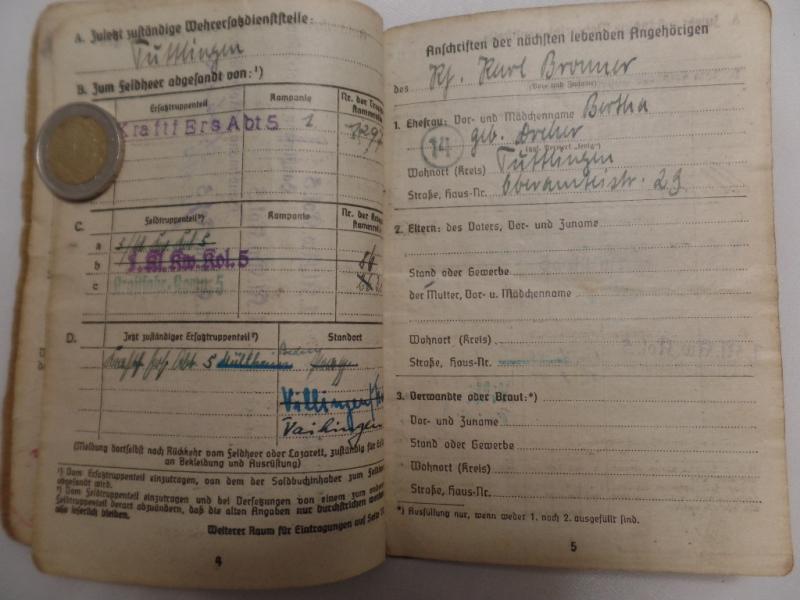 A. Zuletzt zuständige Wehrersatzdienststelle:
Tuttlingen
B. Zum Feldheer abgesandt von:¹)
Ersatztruppenteil Kompanie Nr. der
Kraftf Ers Abt 5 1
C. Feldtruppenteil²) Kompanie Nr. der
a
b 1. Kl. Kw. Kol. 5
c Kraftfahr. Komp. 5
D. Jetzt zuständiger Ersatztruppenteil²) Standort
5 Müllheim
Villingen
Vaihingen
(Meldung dortselbst nach Rückkehr vom Feldheer oder Lazarett, zuständig für
an Bekleidung und Ausrüstung)
¹) Vom Ersatztruppenteil einzutragen, von dem der Soldbuchinhaber zum
abgesandt wird.
²) Vom Feldtruppenteil einzutragen und bei Versetzungen von einem zum
Feldtruppenteil derart abzuändern, daß die alten Angaben nur durchstrichen
also leserlich bleiben.
Weiterer Raum für Eintragungen auf Seite
4
Anschriften der nächsten lebenden Angehörigen
des Kf. Karl Bronner
(Vor- und Zuname)
1. Ehefrau: Vor- und Mädchenname Bertha
geb. Dreher
(ggf. Vermerk „ledig“)
14
Wohnort (Kreis) Tuttlingen
Straße, Haus-Nr. Oberamteistr. 29
2. Eltern: des Vaters, Vor- und Zuname
Stand oder Gewerbe
der Mutter, Vor- u. Mädchenname
Wohnort (Kreis)
Straße, Haus-Nr.
3. Verwandte oder Braut:*)
Vor- und Zuname
Stand oder Gewerbe
Wohnort (Kreis)
Straße, Haus-Nr.
*) Ausfüllung nur, wenn weder 1. noch 2. ausgefüllt sind.
5